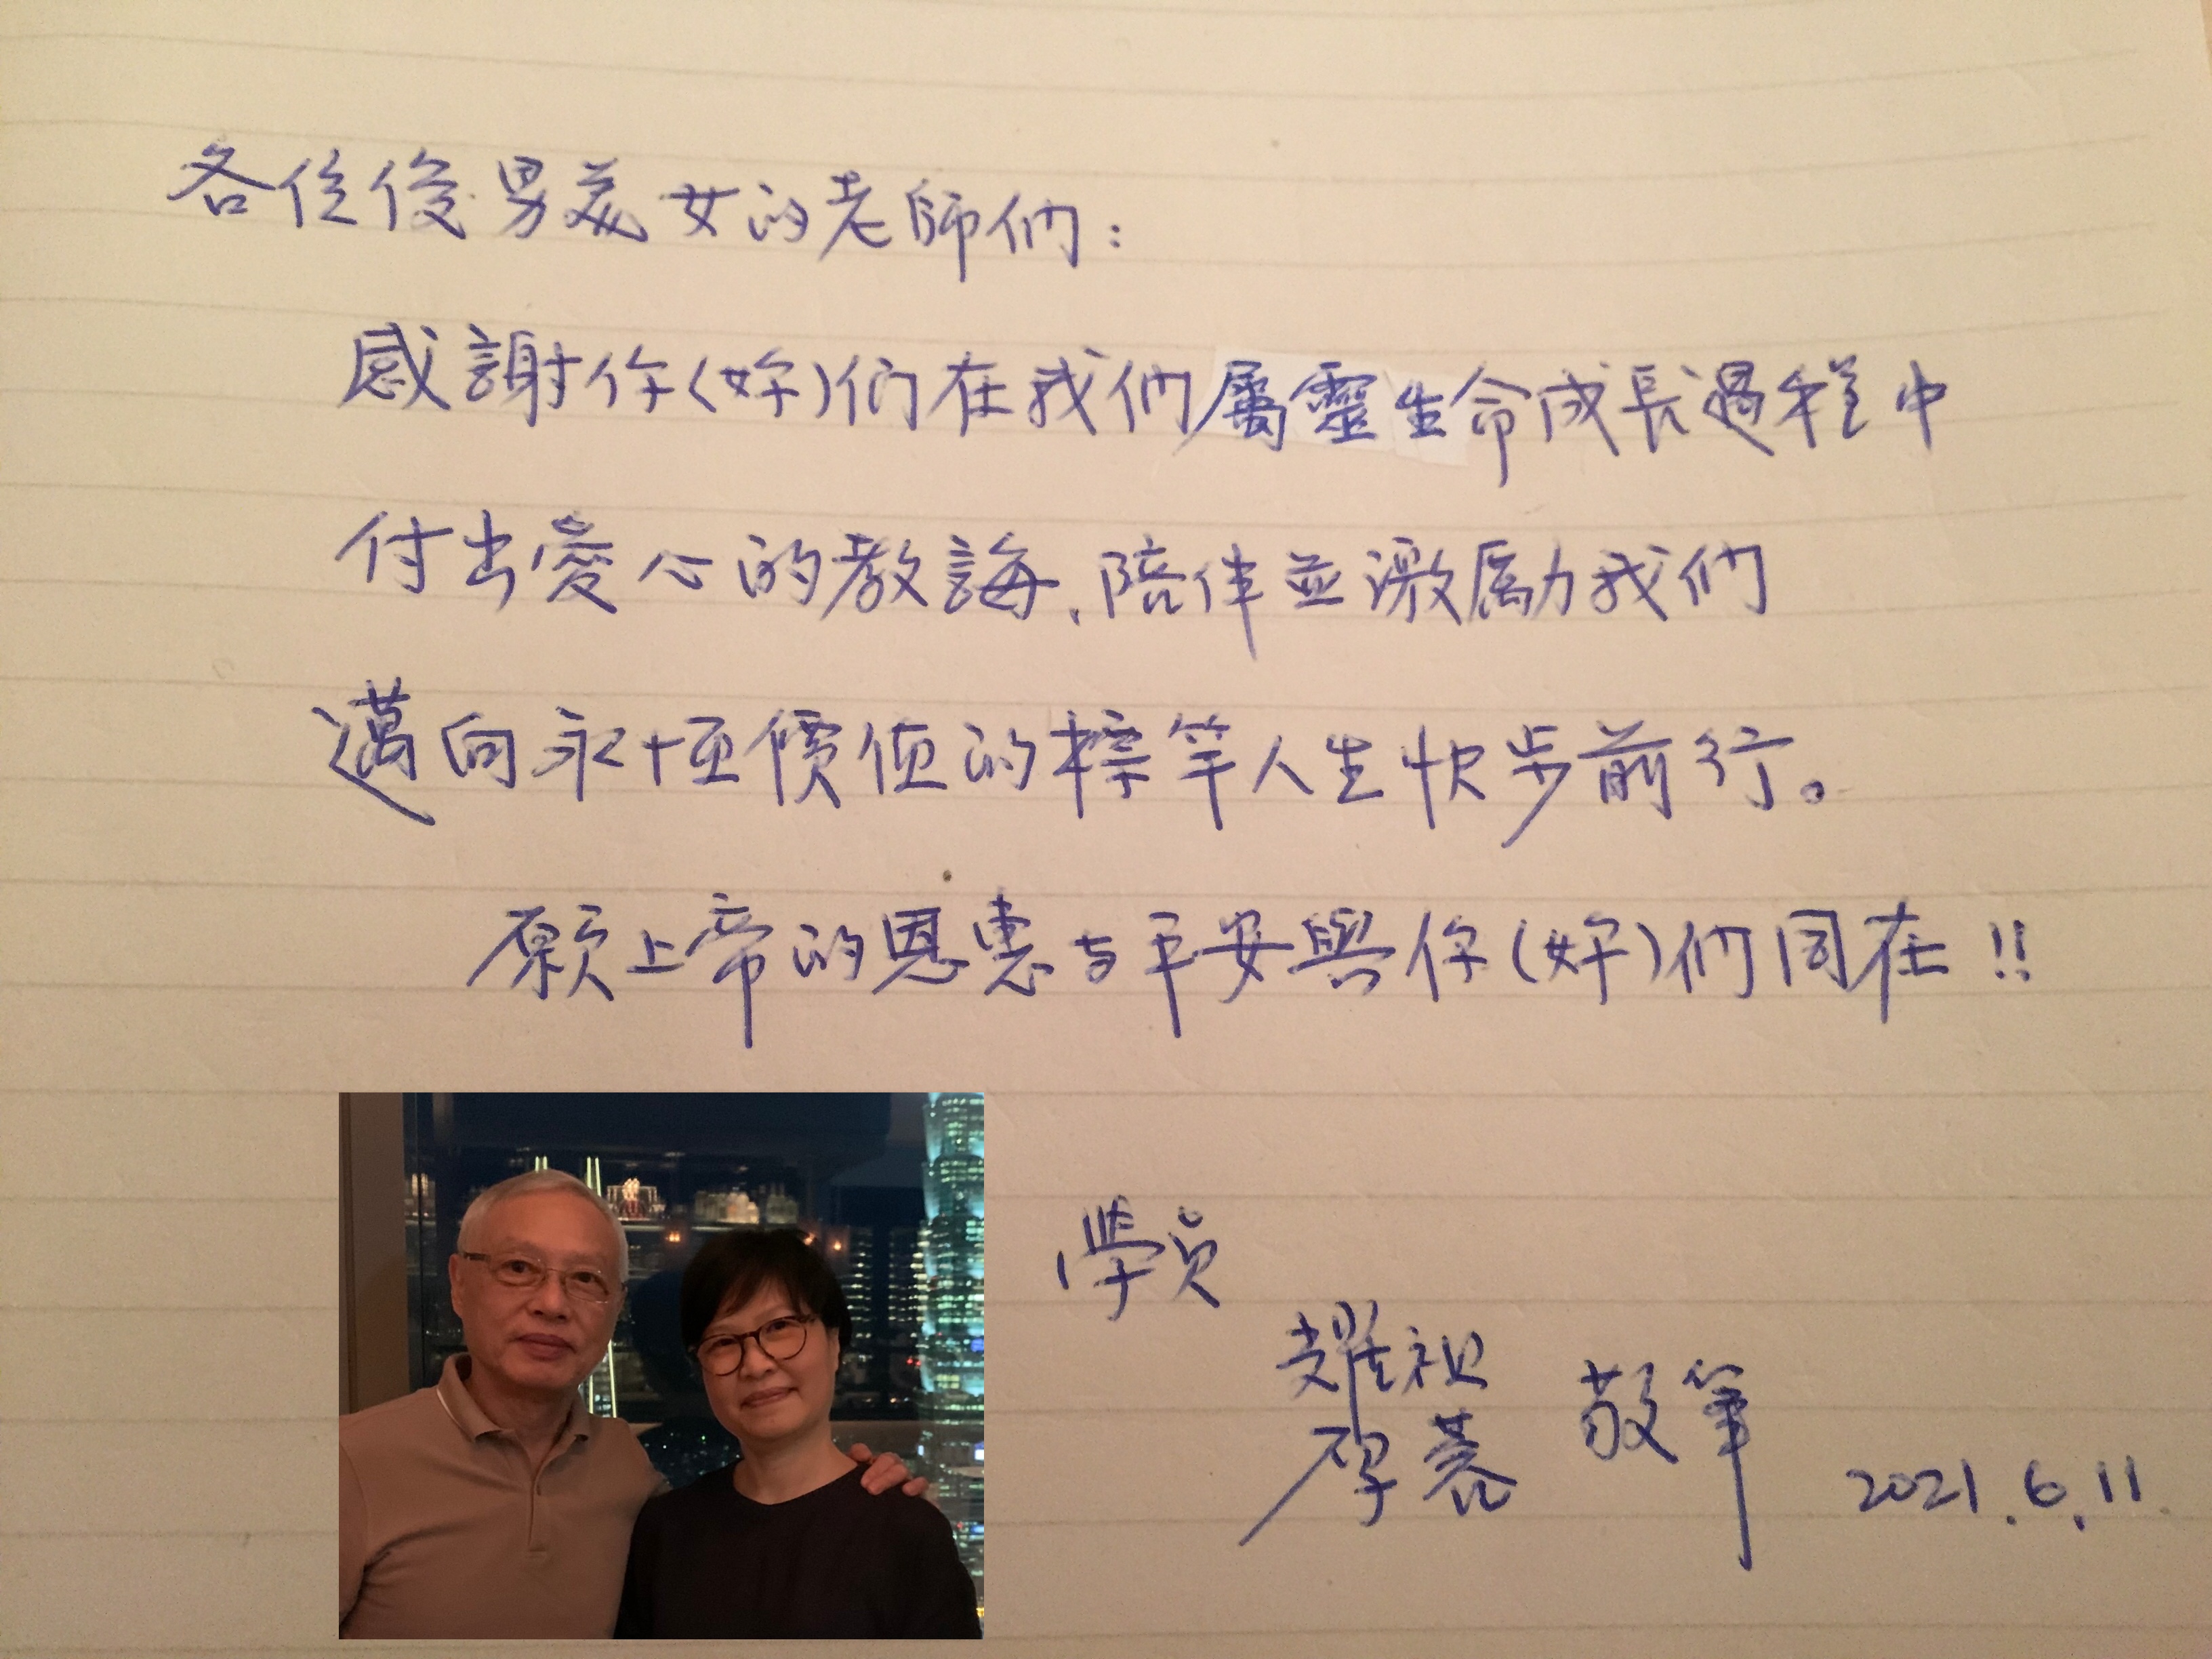 各位俊男美女的老師們：
感謝你(妳)们在我們屬靈生命成長過程中
付出愛心的教誨、陪伴並激勵我们
邁向永恆價值的標竿人生快步前行。
願上帝的恩惠与平安與你(妳)们同在!!
學员
耀祖
慕 敬筆
2021.6.11